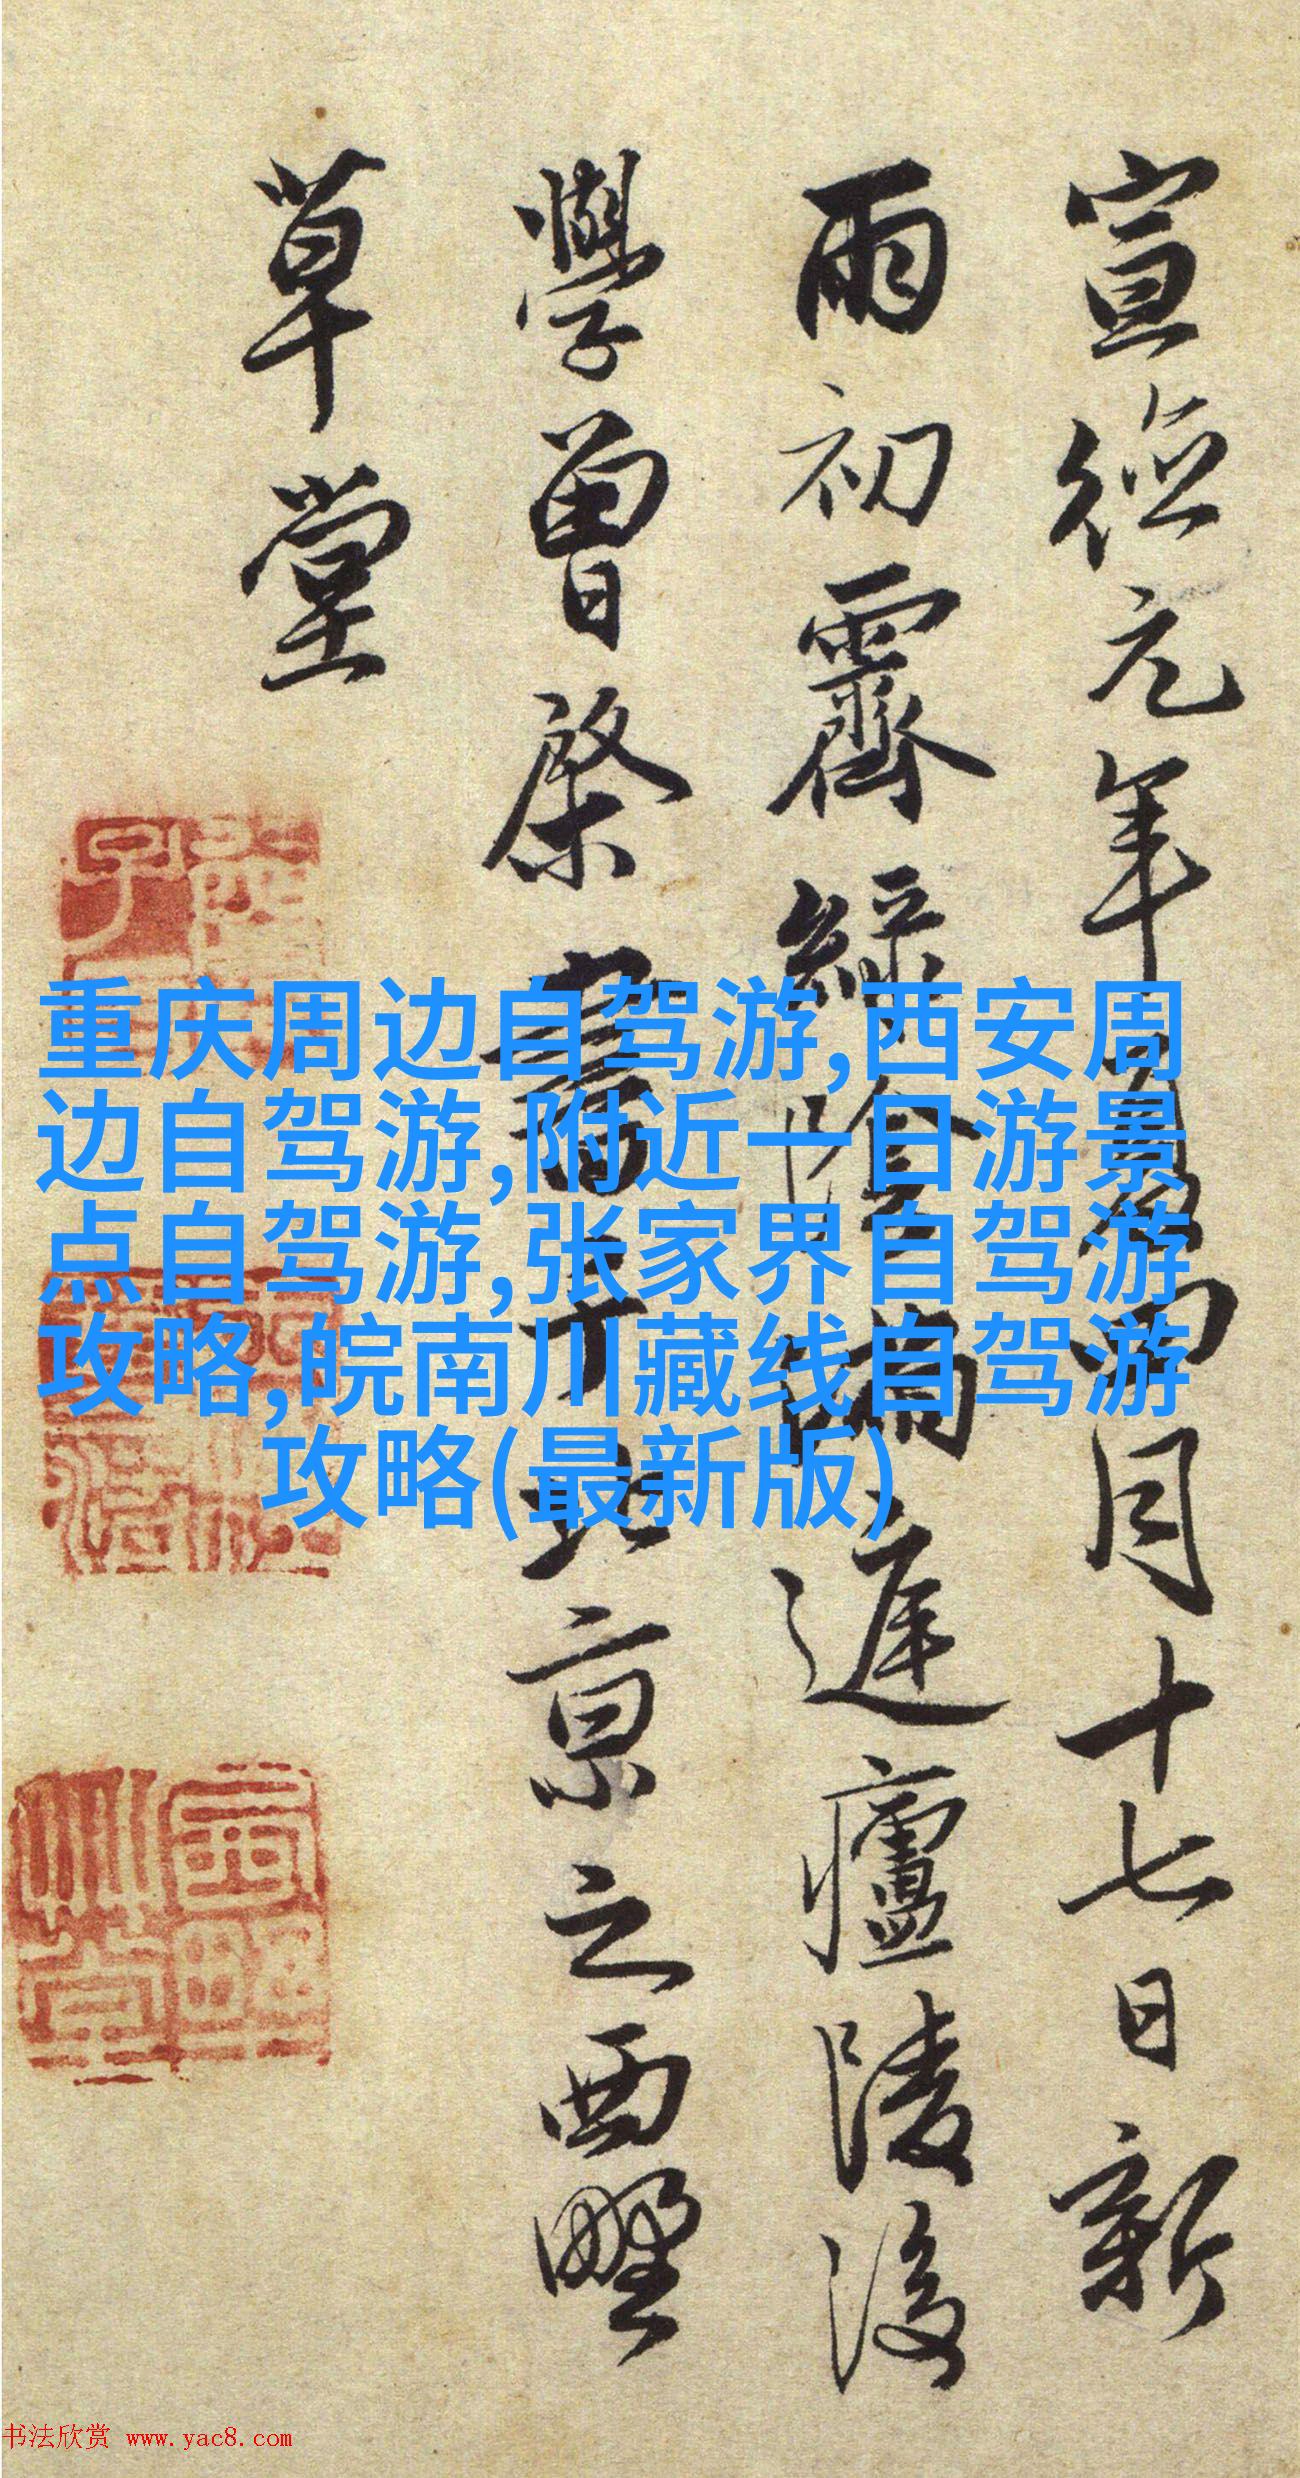 宣德元年夏四月十七日新
雨初霽綠陰滿庭廬陵後
學曾棨書于北京之西墅
草堂
重庆周边自驾游,西安周
边自驾游,附近一日游景
点自驾游,张家界自驾游
攻略,皖南川藏线自驾游
攻略(最新版)
书法欣赏 www.yac8.com